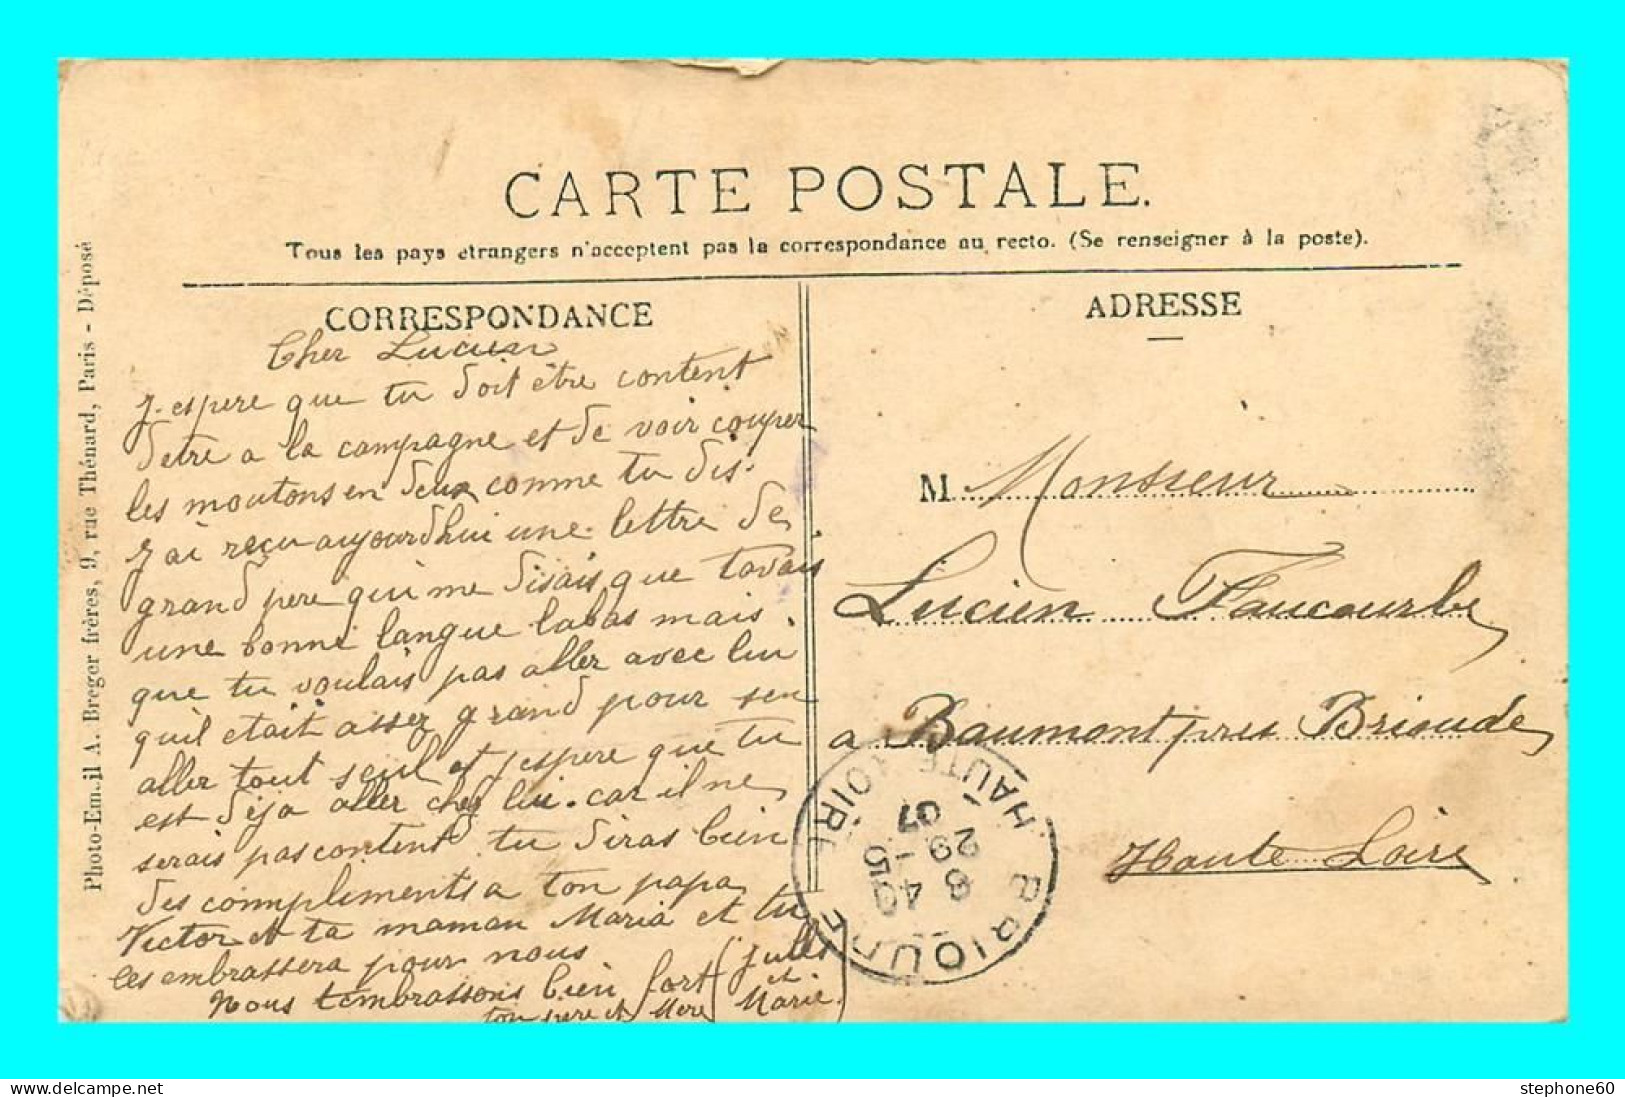 CARTE POSTALE.
Tous les pays etrangers n'acceptent pas la correspondance au recto. (Se renseigner à la poste).
CORRESPONDANCE
Cher Lucien
J-espere que tu doit être content
detre a la campagne et de voir couper
les moutons en deux comme tu dis.
J ai reçu aujourdhui une lettre de
grand pere qui me disais que tavais
une bonne langue labas mais
que tu voulais pas aller avec lui
quil etait assez grand pour sen
aller tout seul et jespere que tu
est deja aller chez lui. car il ne
serais pas content tu diras bien
des compliments a ton papa
Victor et ta maman Maria et tu
les embrassera pour nous
Nous tembrassons bien fort
ton pere et Mere
(Jules
et
Marie)
ADRESSE
M. Monsieur
Lucien Faucourbe
a Baumont pres Brioude
Haute Loire
BRIOUDE
HAUTE LOIRE
8 40
29 - 5
07
Photo-Em.il A. Breger frères, 9, rue Thénard, Paris - Déposé
stephone60